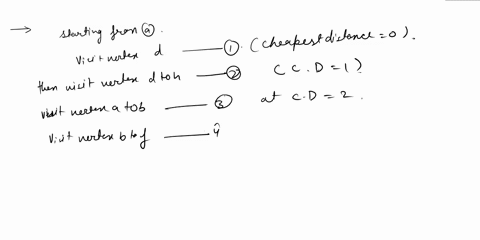 → starting from ⓐ.
visit vertex d —— ① (cheapest distance = 0).
then visit vertex d to h —— ② (C.D = 1)
visit vertex a to b —— ③ at C.D = 2.
visit vertex b to f —— 4